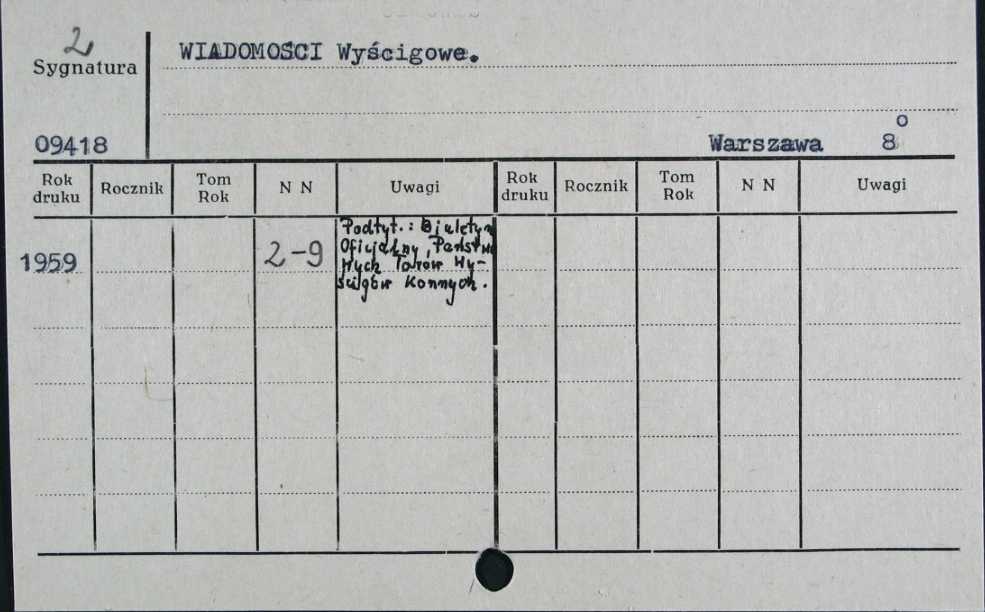 2
Sygnatura
WIADOMOŚCI Wyścigowe.
09418
Warszawa 8°
Rok druku Rocznik Tom Rok N N Uwagi Rok druku Rocznik Tom Rok N N Uwagi
1959 2-9
Podtyt.: Biuletyn
Oficjalny Państwo
wych Torów Wy-
ścigów Konnych.